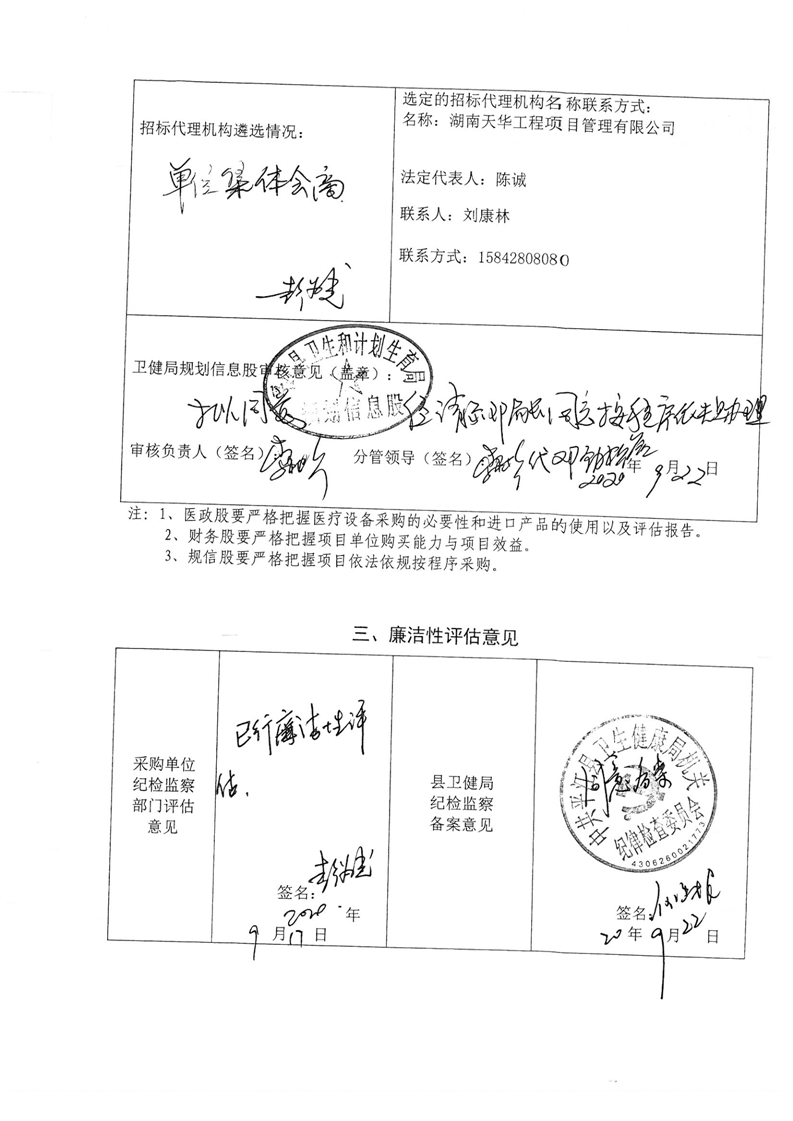 招标代理机构遴选情况：
单位集体会商
选定的招标代理机构名称联系方式：
名称：湖南天华工程项目管理有限公司
法定代表人：陈诚
联系人：刘康林
联系方式：15842808080
卫健局规划信息股审核意见（盖章）：
县卫生和计划生育局
规划信息股
拟同意
经请示邓局长同意按程序依规办理
审核负责人（签名）
分管领导（签名）
2020年 9月22日
注：1、医政股要严格把握医疗设备采购的必要性和进口产品的使用以及评估报告。
2、财务股要严格把握项目单位购买能力与项目效益。
3、规信股要严格把握项目依法依规按程序采购。
三、廉洁性评估意见
采购单位
纪检监察
部门评估
意见
已行廉洁性评
估.
签名：
2020.年
9月17日
县卫健局
纪检监察
备案意见
中共平江县卫生健康局机关
纪律检查委员会
4306260021773
同意备案
签名：
20年9月22日